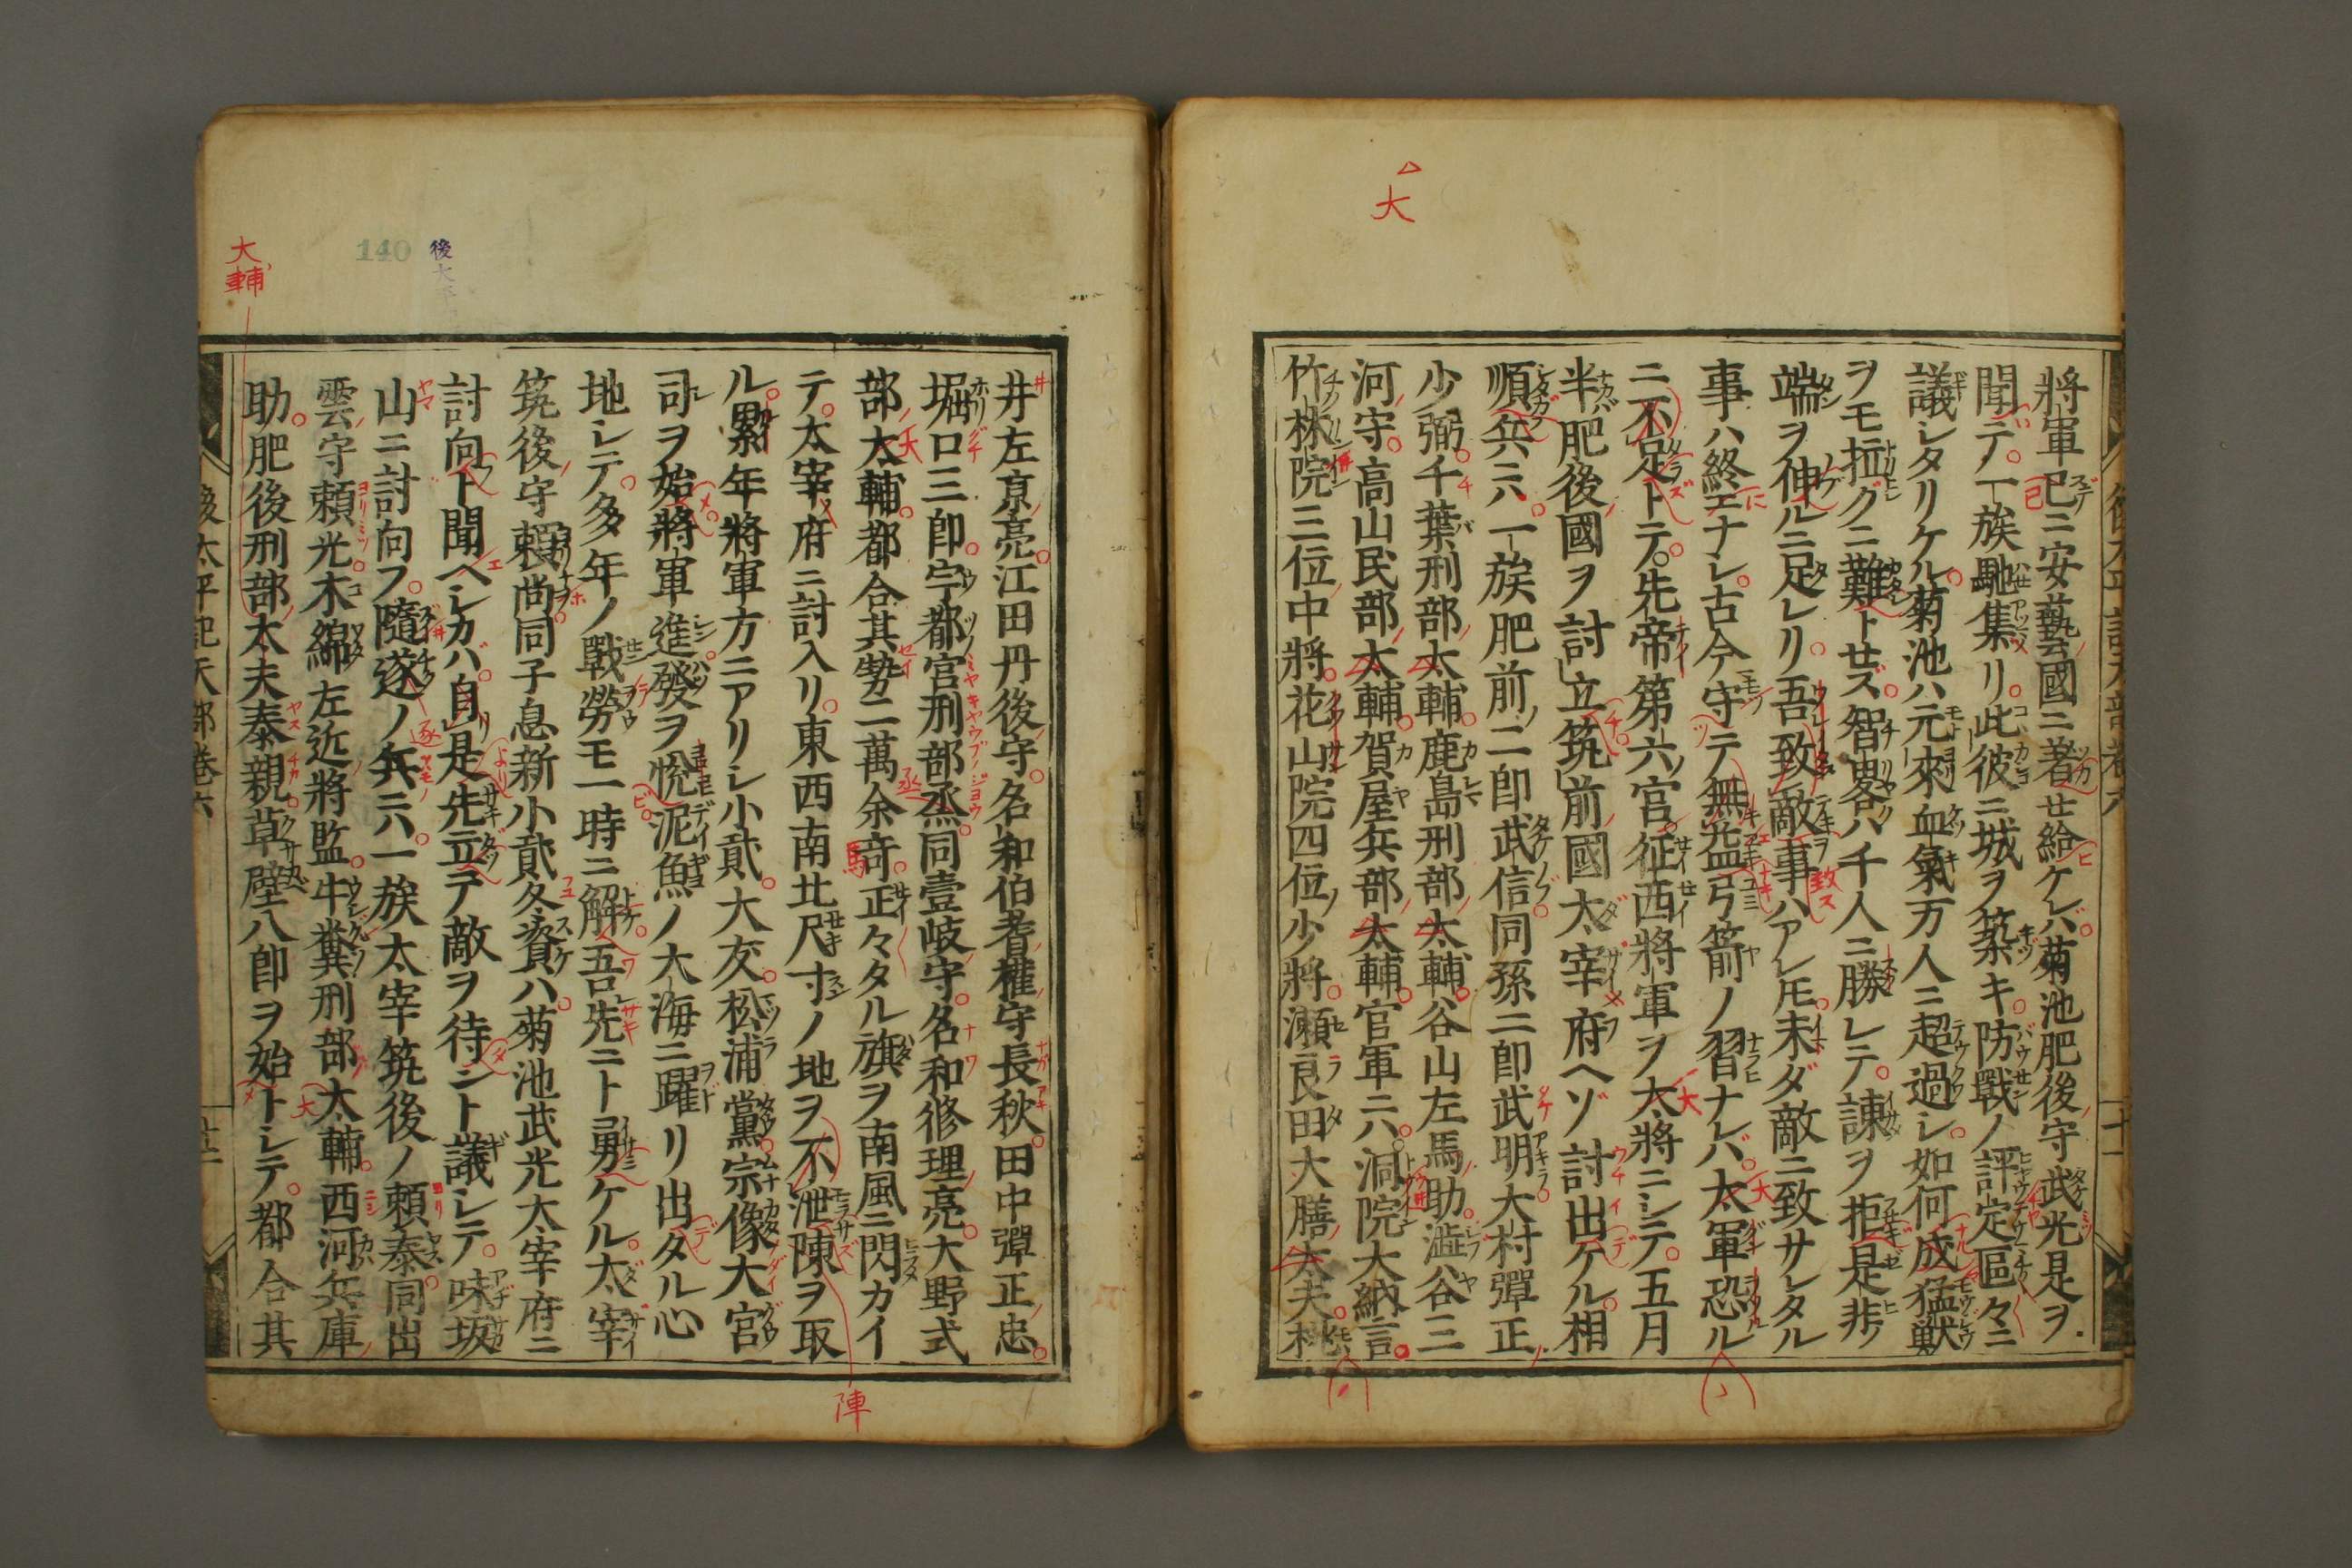 將軍已ニ安藝國ニ着セ給ケレバ菊池肥後守武光是ヲ
聞テ一族馳集リ此彼ニ城ヲ築キ防戰ノ評定區々ニ
議シタリケル菊池ハ元來血氣万人ニ超過シ如何成猛獣
ヲモ拉グニ難トセズ智畧ハ千人ニ勝レテ諫ヲ拒是非ノ
端ヲ伸ルニ足レリ吾致敵事ハアレ𪜈未ダ敵ニ致サレタル
事ハ終エナシ古今守テ無益弓箭ノ習ナレバ太軍恐ル
ニ不足トテ先帝第六ノ宮征西將軍ヲ太將ニシテ五月
半肥後國ヲ討立筑前國太宰府ヘゾ討出ケル相
順兵ニハ一族肥前ノ二郎武信同孫二郎武明大村彈正
少弼千葉刑部太輔鹿島刑部太輔谷山左馬助澁谷三
河守高山民部太輔賀屋兵部太輔官軍ニハ洞院大納言
竹林院三位中將花山院四位ノ少將瀬良田大膳太夫桃
井左京亮江田丹後守名和伯耆權守長秋田中彈正忠
堀口三郎宇都宮刑部烝同壹岐守名和修理亮大野式
部太輔都合其勢二萬余竒正々タル旗ヲ南風ニ閃カイ
テ太宰府ニ討入リ東西南北尺寸ノ地ヲ不泄陳ヲ取
ル累年將軍方ニアリシ小貮大友松浦黨宗像大宮
司ヲ始將軍進發ヲ悦泥魚ノ大海ニ躍リ出タル心
地シテ多年ノ戰勞モ一時ニ解吾先ニト勇ケル太宰
筑後守頼尚同子息新小貮冬資ハ菊池武光太宰府ニ
討向ト聞ヘシカバ自是先立テ敵ヲ待ント議シテ味坂
山ニ討向フ隨遂ノ兵ニハ一族太宰筑後ノ頼泰同出
雲守頼光木綿左近將監牛糞刑部太輔西河兵庫
助肥後刑部太夫泰親草壁八郎ヲ始トシテ都合其
後太平記天部巻六
大
大輔
陣
140
後太